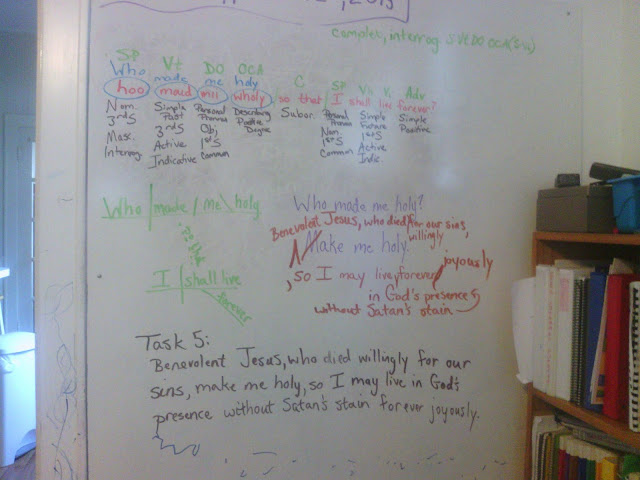 complex, interrog. SVtDO OCA(SVi)
SP Vt DO OCA C SP Vi Vi Adv
Who made me holy
hoo maed mii wholy so that I shall live forever?
Nom. Simple Personal Describing Subor. Personal Simple Simple
3rd S Past Pronoun Positive Pronoun Future Positive
Masc. 3rd S Obj Degree Nom. 1st S
Interrog Active 1st S 1st S Active
Indicative Common Common Indic.
Who made me holy
so that
I shall live
forever
Who made me holy?
Benevolent Jesus, who died for our sins,
willingly
Make me holy
, so I may live forever joyously
in God's presence
without Satan's stain
Task 5:
Benevolent Jesus, who died willingly for our
sins, make me holy, so I may live in God's
presence without Satan's stain forever joyously.